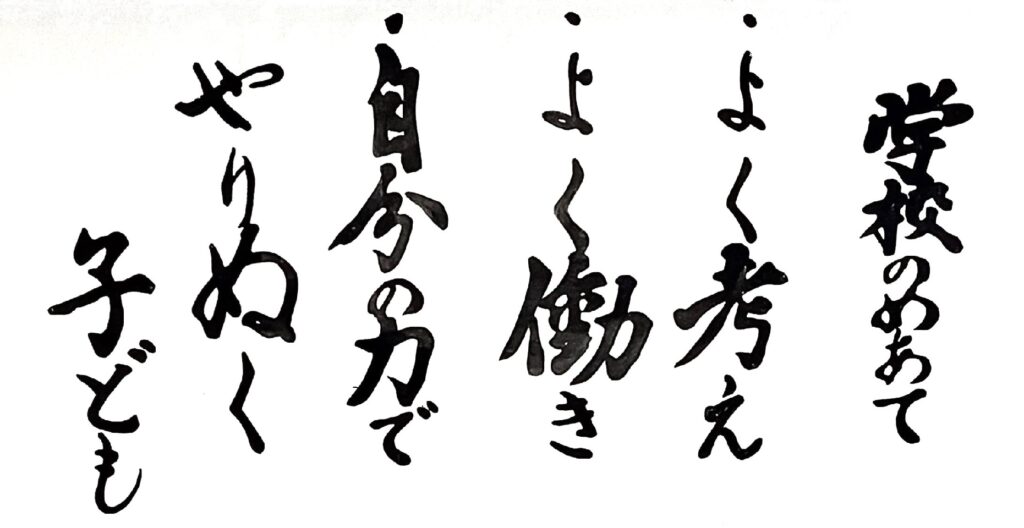 学校のめあて
・よく考え
・よく働き
・自分の力で
やりぬく
子ども